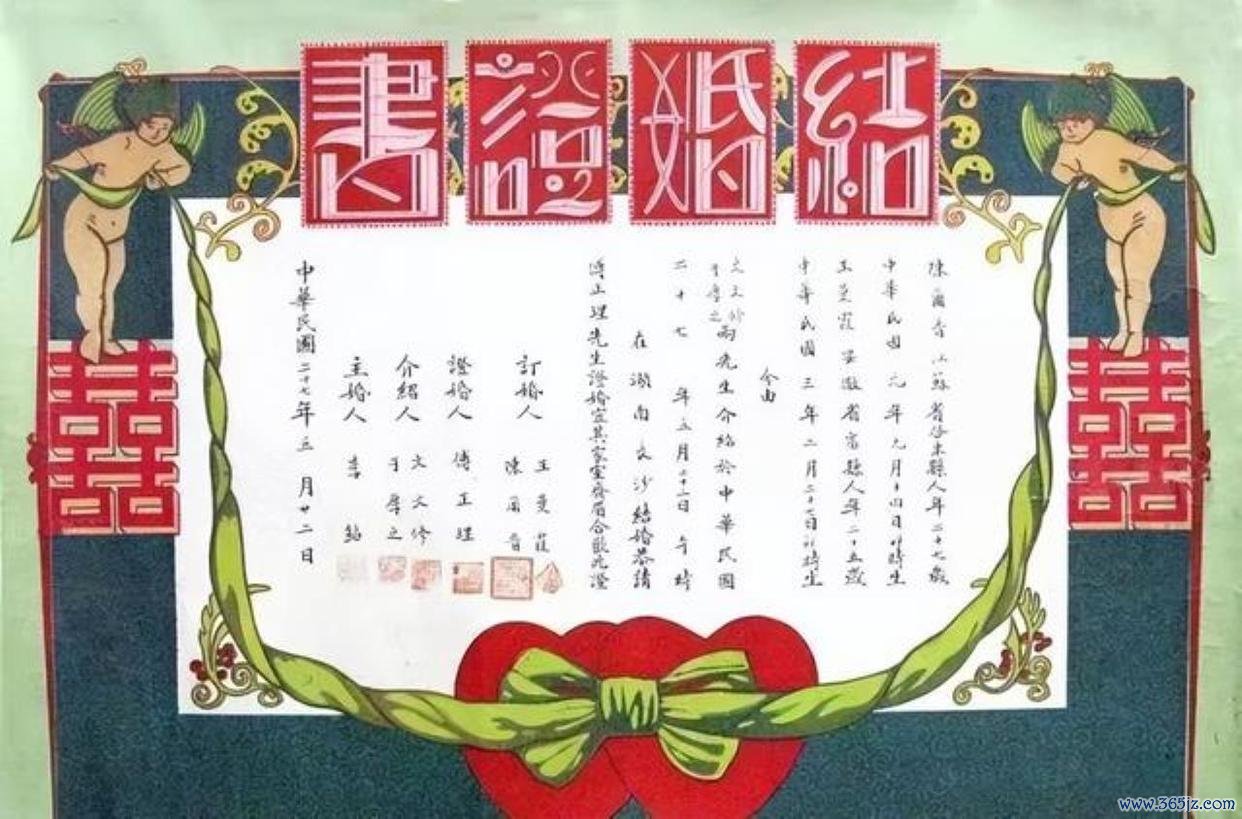 結婚證書
陳爾晋 江蘇省 縣人年二十七歲
中華民國元年九月十四日 時生
王蔓霞 安徽省 縣人年二十五歲
中華民國三年二月二十七日 時生
今由
文文修
于 之
兩先生介紹於中華民國
二十七年五月二十二日 午 時
在湖南長沙結婚恭請
傅正理先生證婚宜其家室齊眉合歡此證
訂婚人 王蔓霞
陳爾晋
證婚人 傅正理
介紹人 文文修
于 之
主婚人 李
中華民國二十七年五月廿二日
囍
囍
www.365jz.com